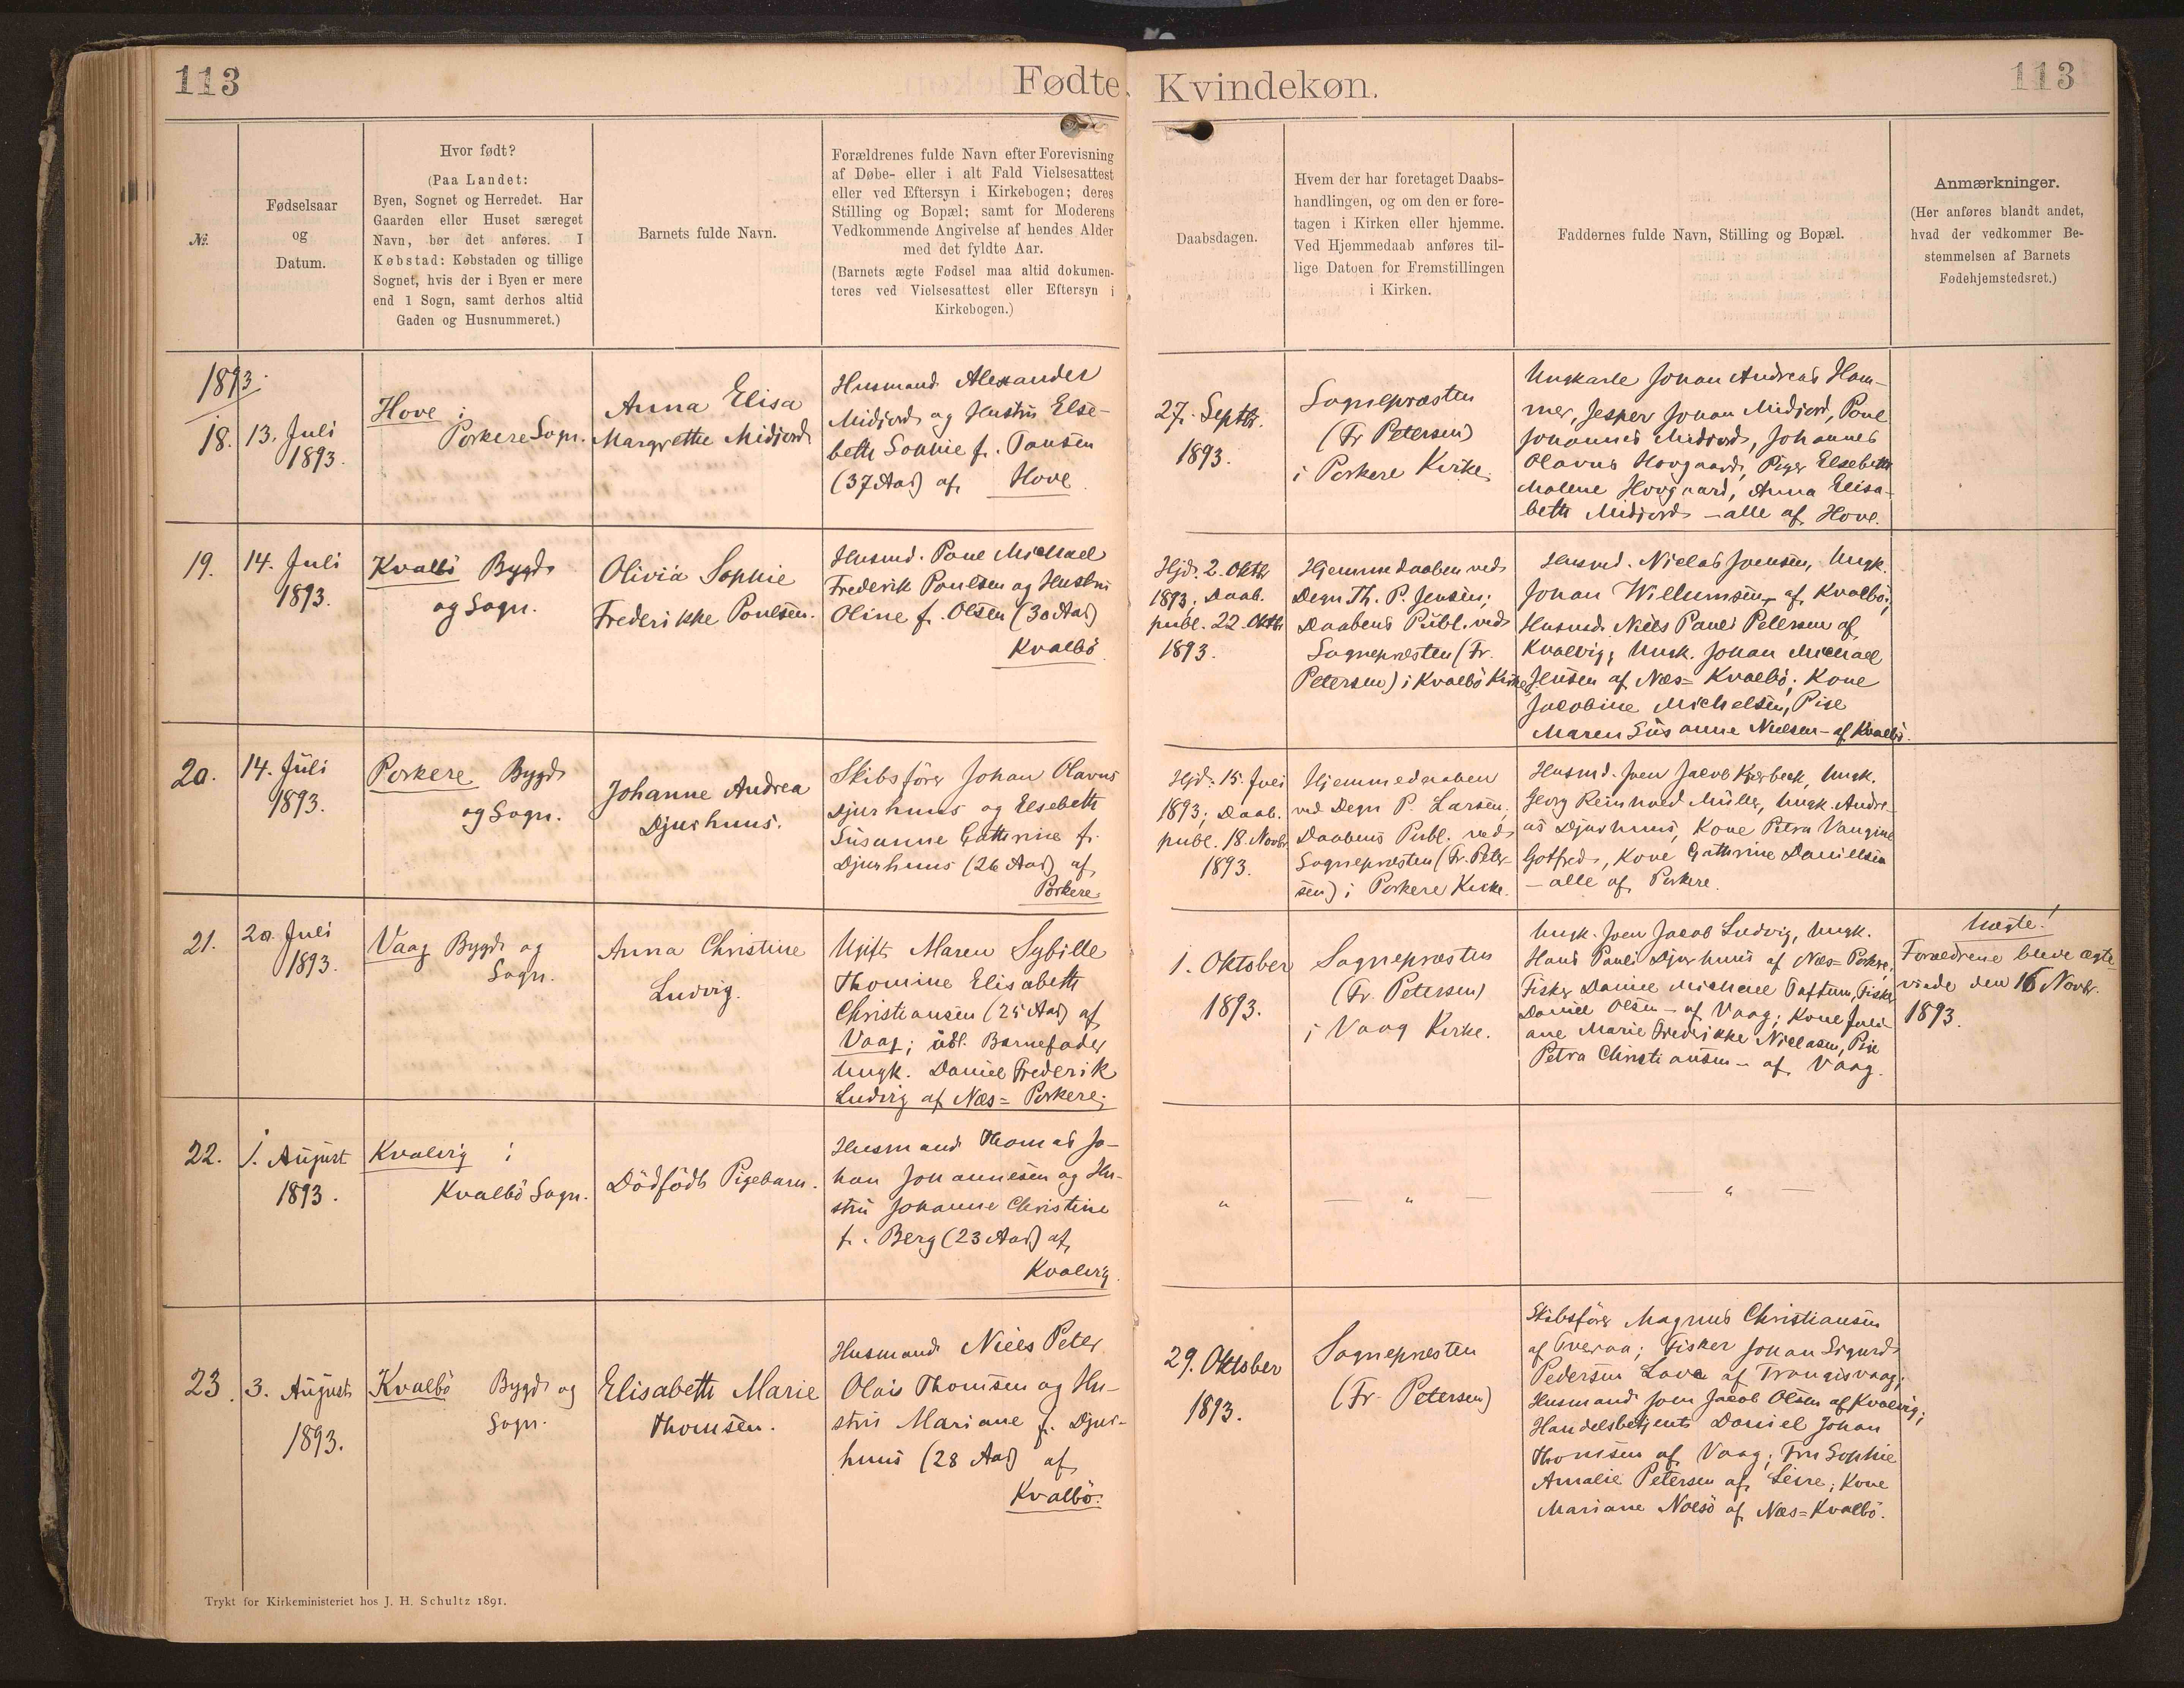 113
Fødte,
Kvindekøn.
113
№.
Fødselsaar
og
Datum.
Hvor født?
(Paa Landet:
Byen, Sognet og Herredet. Har
Gaarden eller Huset særeget
Navn, bør det anføres. I
Købstad: Købstaden og tillige
Sognet, hvis der i Byen er mere
end 1 Sogn, samt derhos altid
Gaden og Husnummeret.)
Barnets fulde Navn.
Forældrenes fulde Navn efter Forevisning
af Døbe- eller i alt Fald Vielsesattest
eller ved Eftersyn i Kirkebogen; deres
Stilling og Bopæl; samt for Moderens
Vedkommende Angivelse af hendes Alder
med det fyldte Aar.
(Barnets ægte Fødsel maa altid dokumen-
teres ved Vielsesattest eller Eftersyn i
Kirkebogen.)
Daabsdagen.
Hvem der har foretaget Daabs-
handlingen, og om den er fore-
tagen i Kirken eller hjemme.
Ved Hjemmedaab anføres til-
lige Datoen for Fremstillingen
i Kirken.
Faddernes fulde Navn, Stilling og Bopæl.
Anmærkninger.
(Her anføres blandt andet,
hvad der vedkommer Be-
stemmelsen af Barnets
Fødehjemstedsret.)
1893.
18.
13. Juli
1893.
Hove i
Porkere Sogn.
Anna Elisa
Margrethe Midjord
Husmand Alexander
Midjord og Hustru Else-
beth Sophie f. Tausen
(37 Aar) af Hove.
27. Septbr.
1893.
Sognepræsten
(Fr Petersen)
i Porkere Kirke.
Ungkarle Johan Andreas Ham-
mer, Jesper Johan Midjord, Poul
Johannes Midjord, Johannes
Olavus Hovgaard, Piger Elsebeth
Malene Hovgaard, Anna Elisa-
beth Midjord – alle af Hove.
19.
14. Juli
1893.
Kvalbö Bygd
og Sogn.
Olivia Sophie
Frederikke Poulsen.
Husmd. Poul Michael
Frederik Poulsen og Hustru
Oline f. Olsen (30 Aar)
Kvalbö
Hjd. 2. Oktbr
1893; Daab.
publ. 22. Oktbr
1893.
Hjemmedaaben ved
Degn Th. P. Jensen;
Daabens Publ. ved
Sognepræsten (Fr.
Petersen) i Kvalbö Kirke
Husmd. Niclas Joensen, Ungk.
Johan Willumsen, af Kvalbö;
Husmd. Niels Pauli Petersen af
Kvalvig; Ungk. Johan Michael
Jensen af Næs=Kvalbö; Kone
Jacobine Michelsen, Pige
Maren Susanne Nielsen – af Kvalbö.
20.
14. Juli
1893.
Porkere Bygd
og Sogn.
Johanne Andrea
Djurhuus.
Skibsförer Johan Olavus
Djurhuus og Elsebeth
Susanne Cathrine f.
Djurhuus (26 Aar) af
Porkere
Hjd. 15. Juli
1893; Daab.
publ. 18. Novbr
1893.
Hjemmedaaben
ved Degn P. Larsen,
Daabens Publ. ved
Sognepræsten (Fr. Peter-
sen) i Porkere Kirke.
Husmd. Joen Jacob Kjærbeck, Ungk.
Georg Reinhold Müller, Ungk. Andre-
as Djurhuus, Kone Petra Vangine
Gotfred, Kone Cathrine Danielsen
– alle af Porkere.
21.
20. Juli
1893.
Vaag Bygd og
Sogn.
Anna Christine
Ludvig.
Ugift Maren Sybille
Thomine Elisabeth
Christiansen (25 Aar) af
Vaag; udl. Barnefader
Ungk. Daniel Frederik
Ludvig af Næs= Porkere.
1. Oktober
1893.
Sognepræsten
(Fr. Petersen)
i Vaag Kirke.
Ungk. Joen Jacob Ludvig, Ungk.
Hans Pauli Djurhuus af Næs=Porkere,
Fisker Daniel Michael Toftum, Fisker
Daniel Olsen – af Vaag; Kone Juli-
ane Marie Frederikke Niclasen, Pige
Petra Christiansen – af Vaag.
Uægte!
Forældrene bleve ægte-
viede den 16 Novbr.
1893.
22.
1. August
1893.
Kvalvig i
Kvalbö Sogn.
Dödfödt Pigebarn.
Husmand Thomas Jo-
han Johannesen og Hu-
stru Johanne Christine
f. Berg (23 Aar) af
Kvalvig.
"
— " —
— " —
23.
3. August
1893.
Kvalbö Bygd og
Sogn.
Elisabeth Marie
Thomsen.
Husmand Niels Peter
Olais Thomsen og Hu-
stru Mariane f. Djur-
huus (28 Aar) af
Kvalbö.
29. Oktober
1893.
Sognepræsten
(Fr. Petersen)
Skibsförer Magnus Christiansen
af Tveraa; Fisker Johan Sigurd
Pedersen Lava af Trangisvaag;
Husmand Joen Jacob Olsen af Kvalvig;
Handelsbetjent Daniel Johan
Thomsen af Vaag; Fru Sophie
Amalie Petersen af Leire; Kone
Mariane Nolsö af Næs=Kvalbö.
Trykt for Kirkeministeriet hos J. H. Schultz 1891.